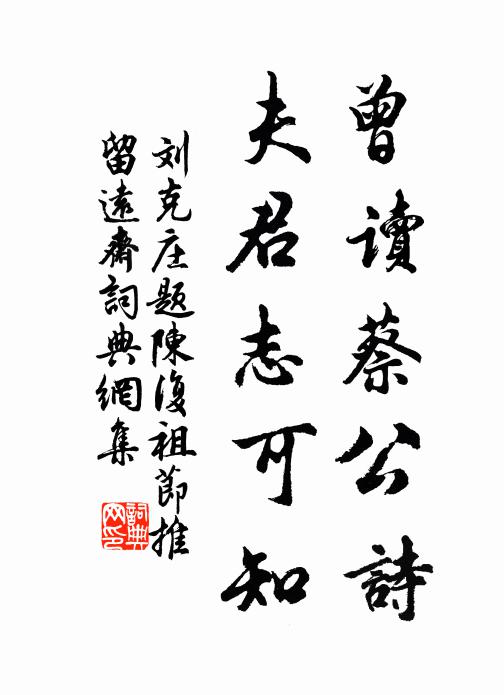 曾讀蔡公詩
夫君志可知
刘克庄題陳復祖節推
留遠齋詞典網集
詞典网印